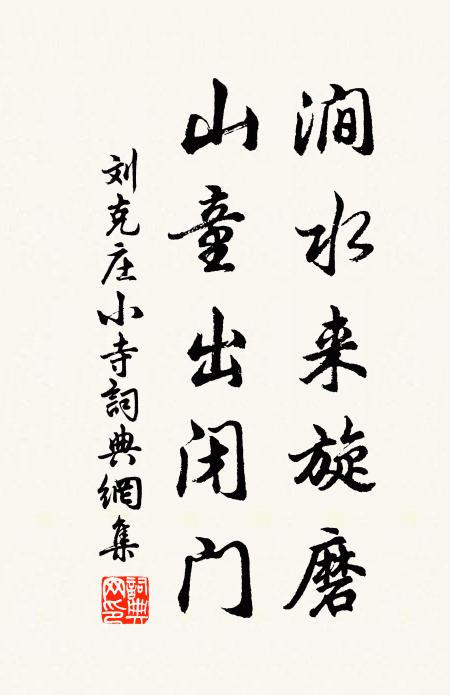 涧水来旋磨
山童出闭门
刘克庄小寺詞典網集
詞典网印